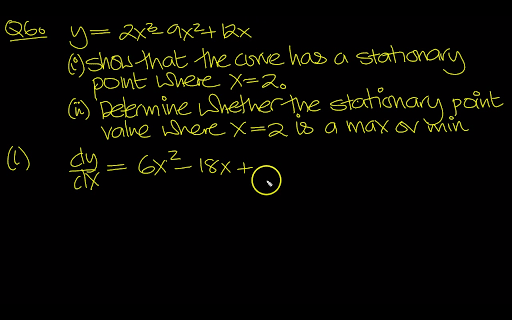 Q6. y = 2x³ - 9x² + 12x
(i) show that the curve has a stationary
point where x = 2.
(ii) Determine whether the stationary point
value where x = 2 is a max or min
(i) dy/dx = 6x² - 18x +